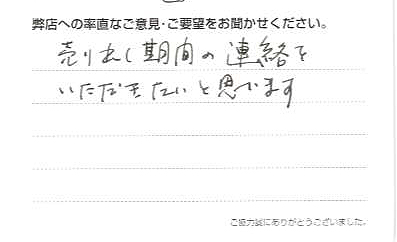 弊店への率直なご意見・ご要望をお聞かせください。
売り出し期間の連絡を
いただきたいと思います
ご協力誠にありがとうございました。